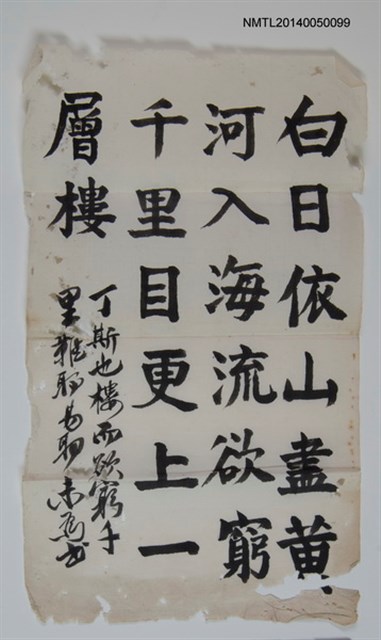 NMTL20140050099
白日依山盡黃
河入海流欲窮
千里目更上一
層樓
丁斯也樓而欲窮千
里難